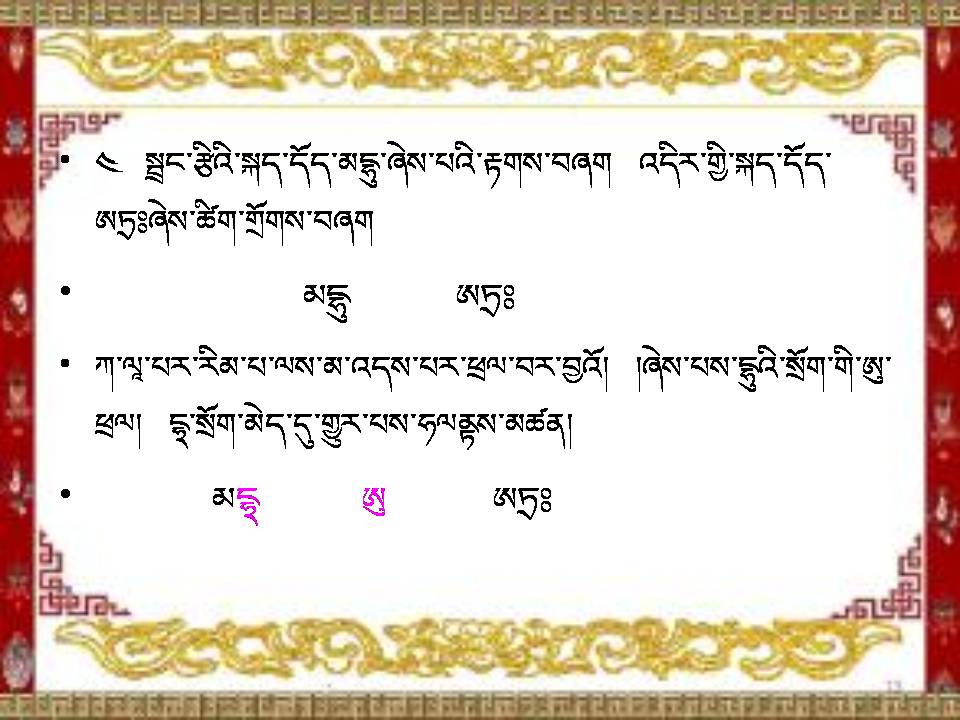 • ༤ སྦྲང་རྩིའི་སྐད་དོད་མདྷུ་ཞེས་པའི་རྟགས་བཞག འདིར་གྱི་སྐད་དོད་
ཨཏྲཿཞེས་ཚིག་གྲོགས་བཞག
• མདྷུ ཨཏྲཿ
• ཀ་ལཱ་པར་རིམ་པ་ལས་མ་འདས་པར་ཕྲལ་བར་བྱའོ། །ཞེས་པས་དྷུའི་སྲོག་གི་ཨུ་
ཕྲལ། དྷ྄་སྲོག་མེད་དུ་གྱུར་པས་ཧལནྟས་མཚན།
• མདྷ྄ ཨུ ཨཏྲཿ